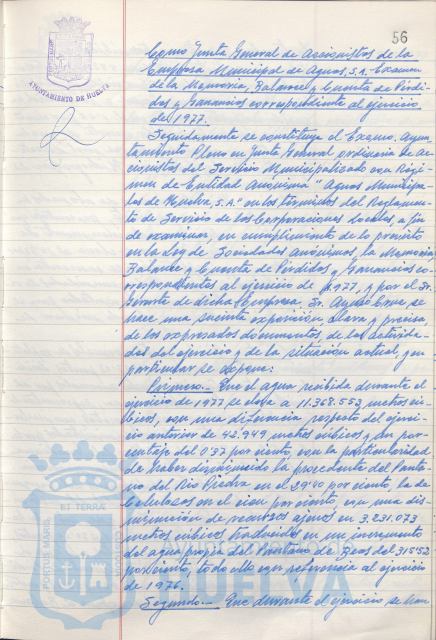 56
AYUNTAMIENTO DE HUELVA
Como Junta General de Accionistas de la
Empresa Municipal de Aguas, S.A. Examen
de la Memoria, Balance y Cuenta de Pérdi-
das y Ganancias correspondiente al ejercicio
de 1977.
Seguidamente se constituye el Excmo. Ayun-
tamiento Pleno en Junta General ordinaria de Ac-
cionistas del Servicio Municipalizado en Régi-
men de Entidad Anónima "Aguas Municipa-
les de Huelva, S.A." en los términos del Reglamen-
to de Servicio de las Corporaciones Locales, a fin
de examinar, en cumplimiento de lo previsto
en la Ley de Sociedades Anónimas, la Memoria
Balance y Cuenta de Pérdidas y Ganancias co-
rrespondientes al ejercicio de 1.977, y por el Sr.
Gerente de dicha Empresa, Sr. se
hace una sucinta exposición, clara y precisa,
de los expresados documentos de las activida-
des del ejercicio y de la situación actual, y en
particular se expone:
Primero.- Que el agua recibida durante el
ejercicio de 1977 se eleva a 11.368.552 metros cú-
bicos, con una diferencia respecto del ejerci-
cio anterior de 42.949 metros cúbicos y un por-
centaje del 0'37 por ciento, con la particularidad
de haber disminuido la procedente del Panta-
no del Río Piedra en el 29'40 por ciento, la de
Celulosas en el cien por ciento, con una dis-
minución de recursos ajenos en 3.231.073
metros cúbicos traducidos en un incremento
del agua propia del Pantano de Beas del 315'52
por ciento, todo ello con referencia al ejercicio
de 1976.
Segundo.- Que durante el ejercicio se han
PORTUS MARIS
ET TERRAE
CUSTODIA
HUELVA